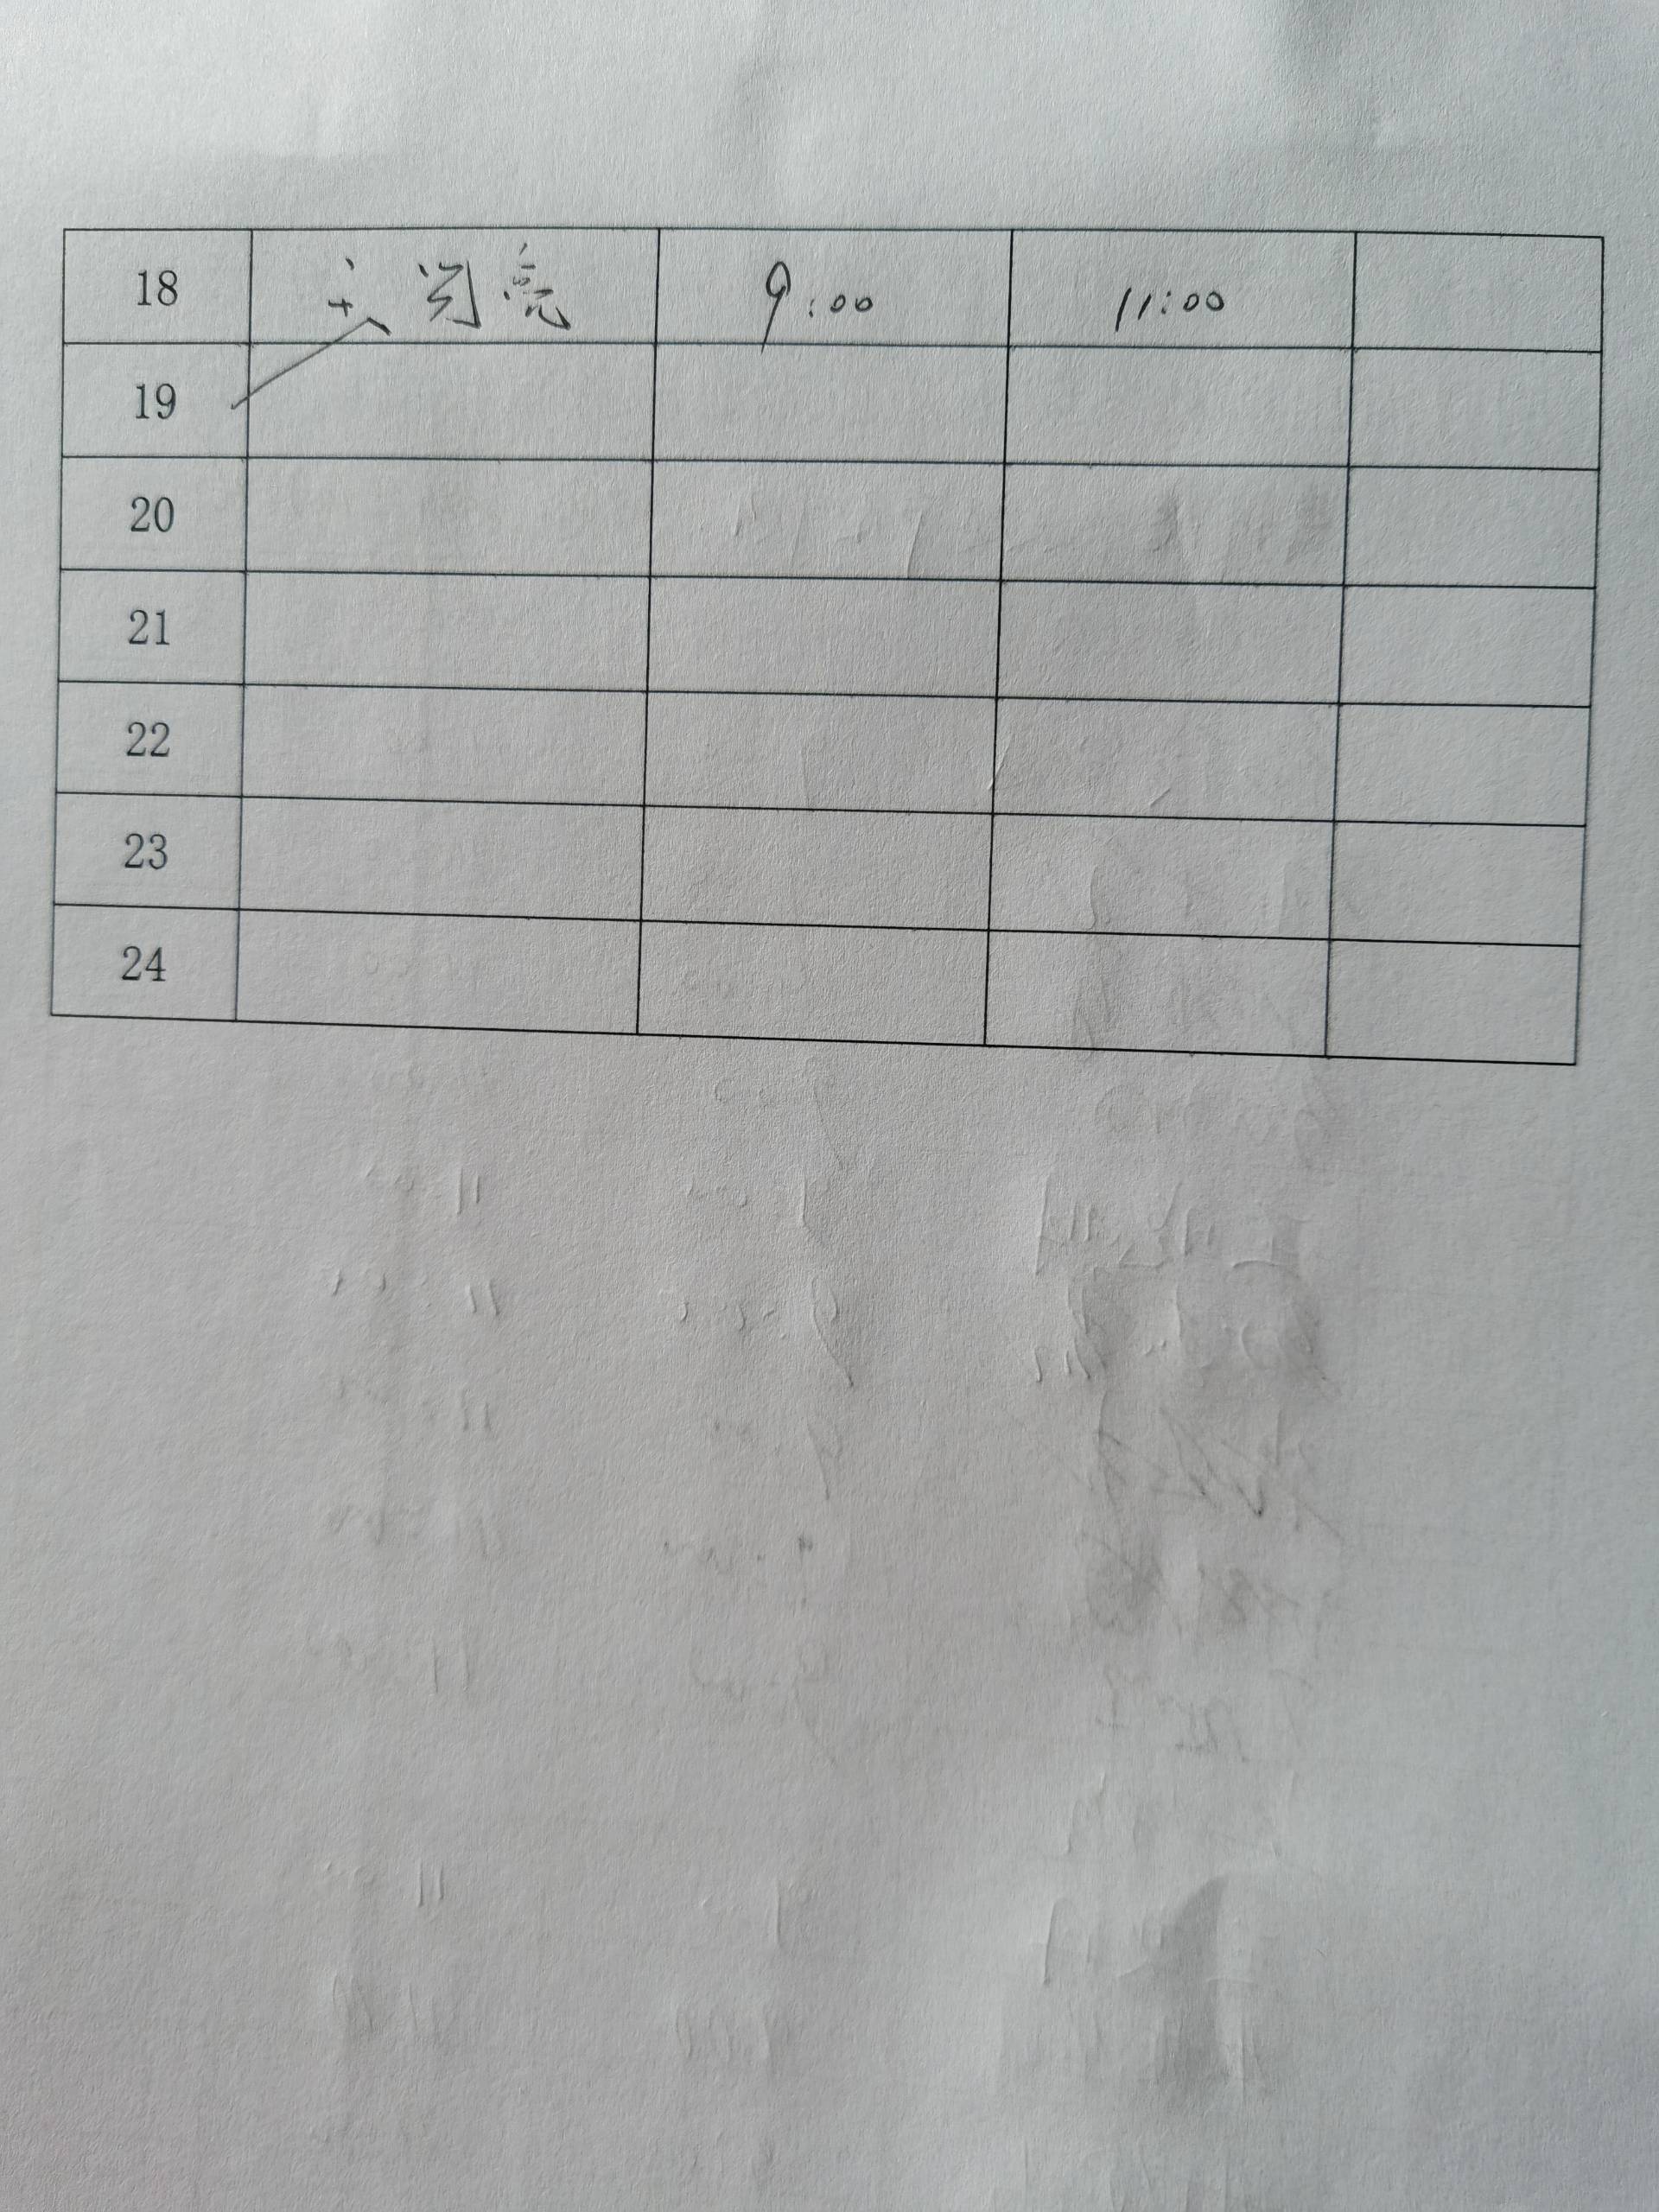 18 亮 9:00 11:00
19
20
21
22
23
24